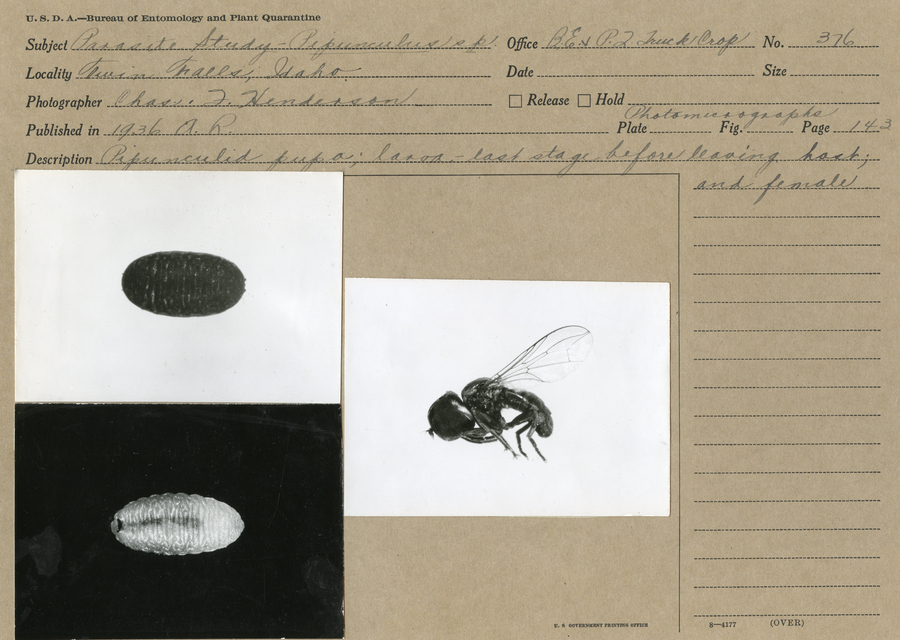 U. S. D. A.—Bureau of Entomology and Plant Quarantine
Subject Parasite Study - Pipunculus sp. Office B.E. & P.Q. Truck Crop No. 376
Locality Twin Falls, Idaho Date Size
Photographer Chas. F. Henderson Release Hold
Photomicrographs
Published in 1936 A.R. Plate Fig. Page 143
Description Pipunculid pupa; larva - last stage before leaving host;
and female
U. S GOVERNMENT PRINTING OFFICE
8—4177 (OVER)